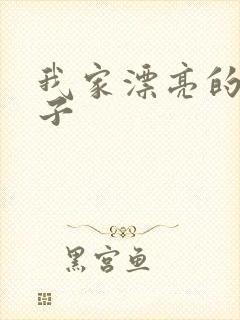 我家漂亮的
子
黑宫鱼